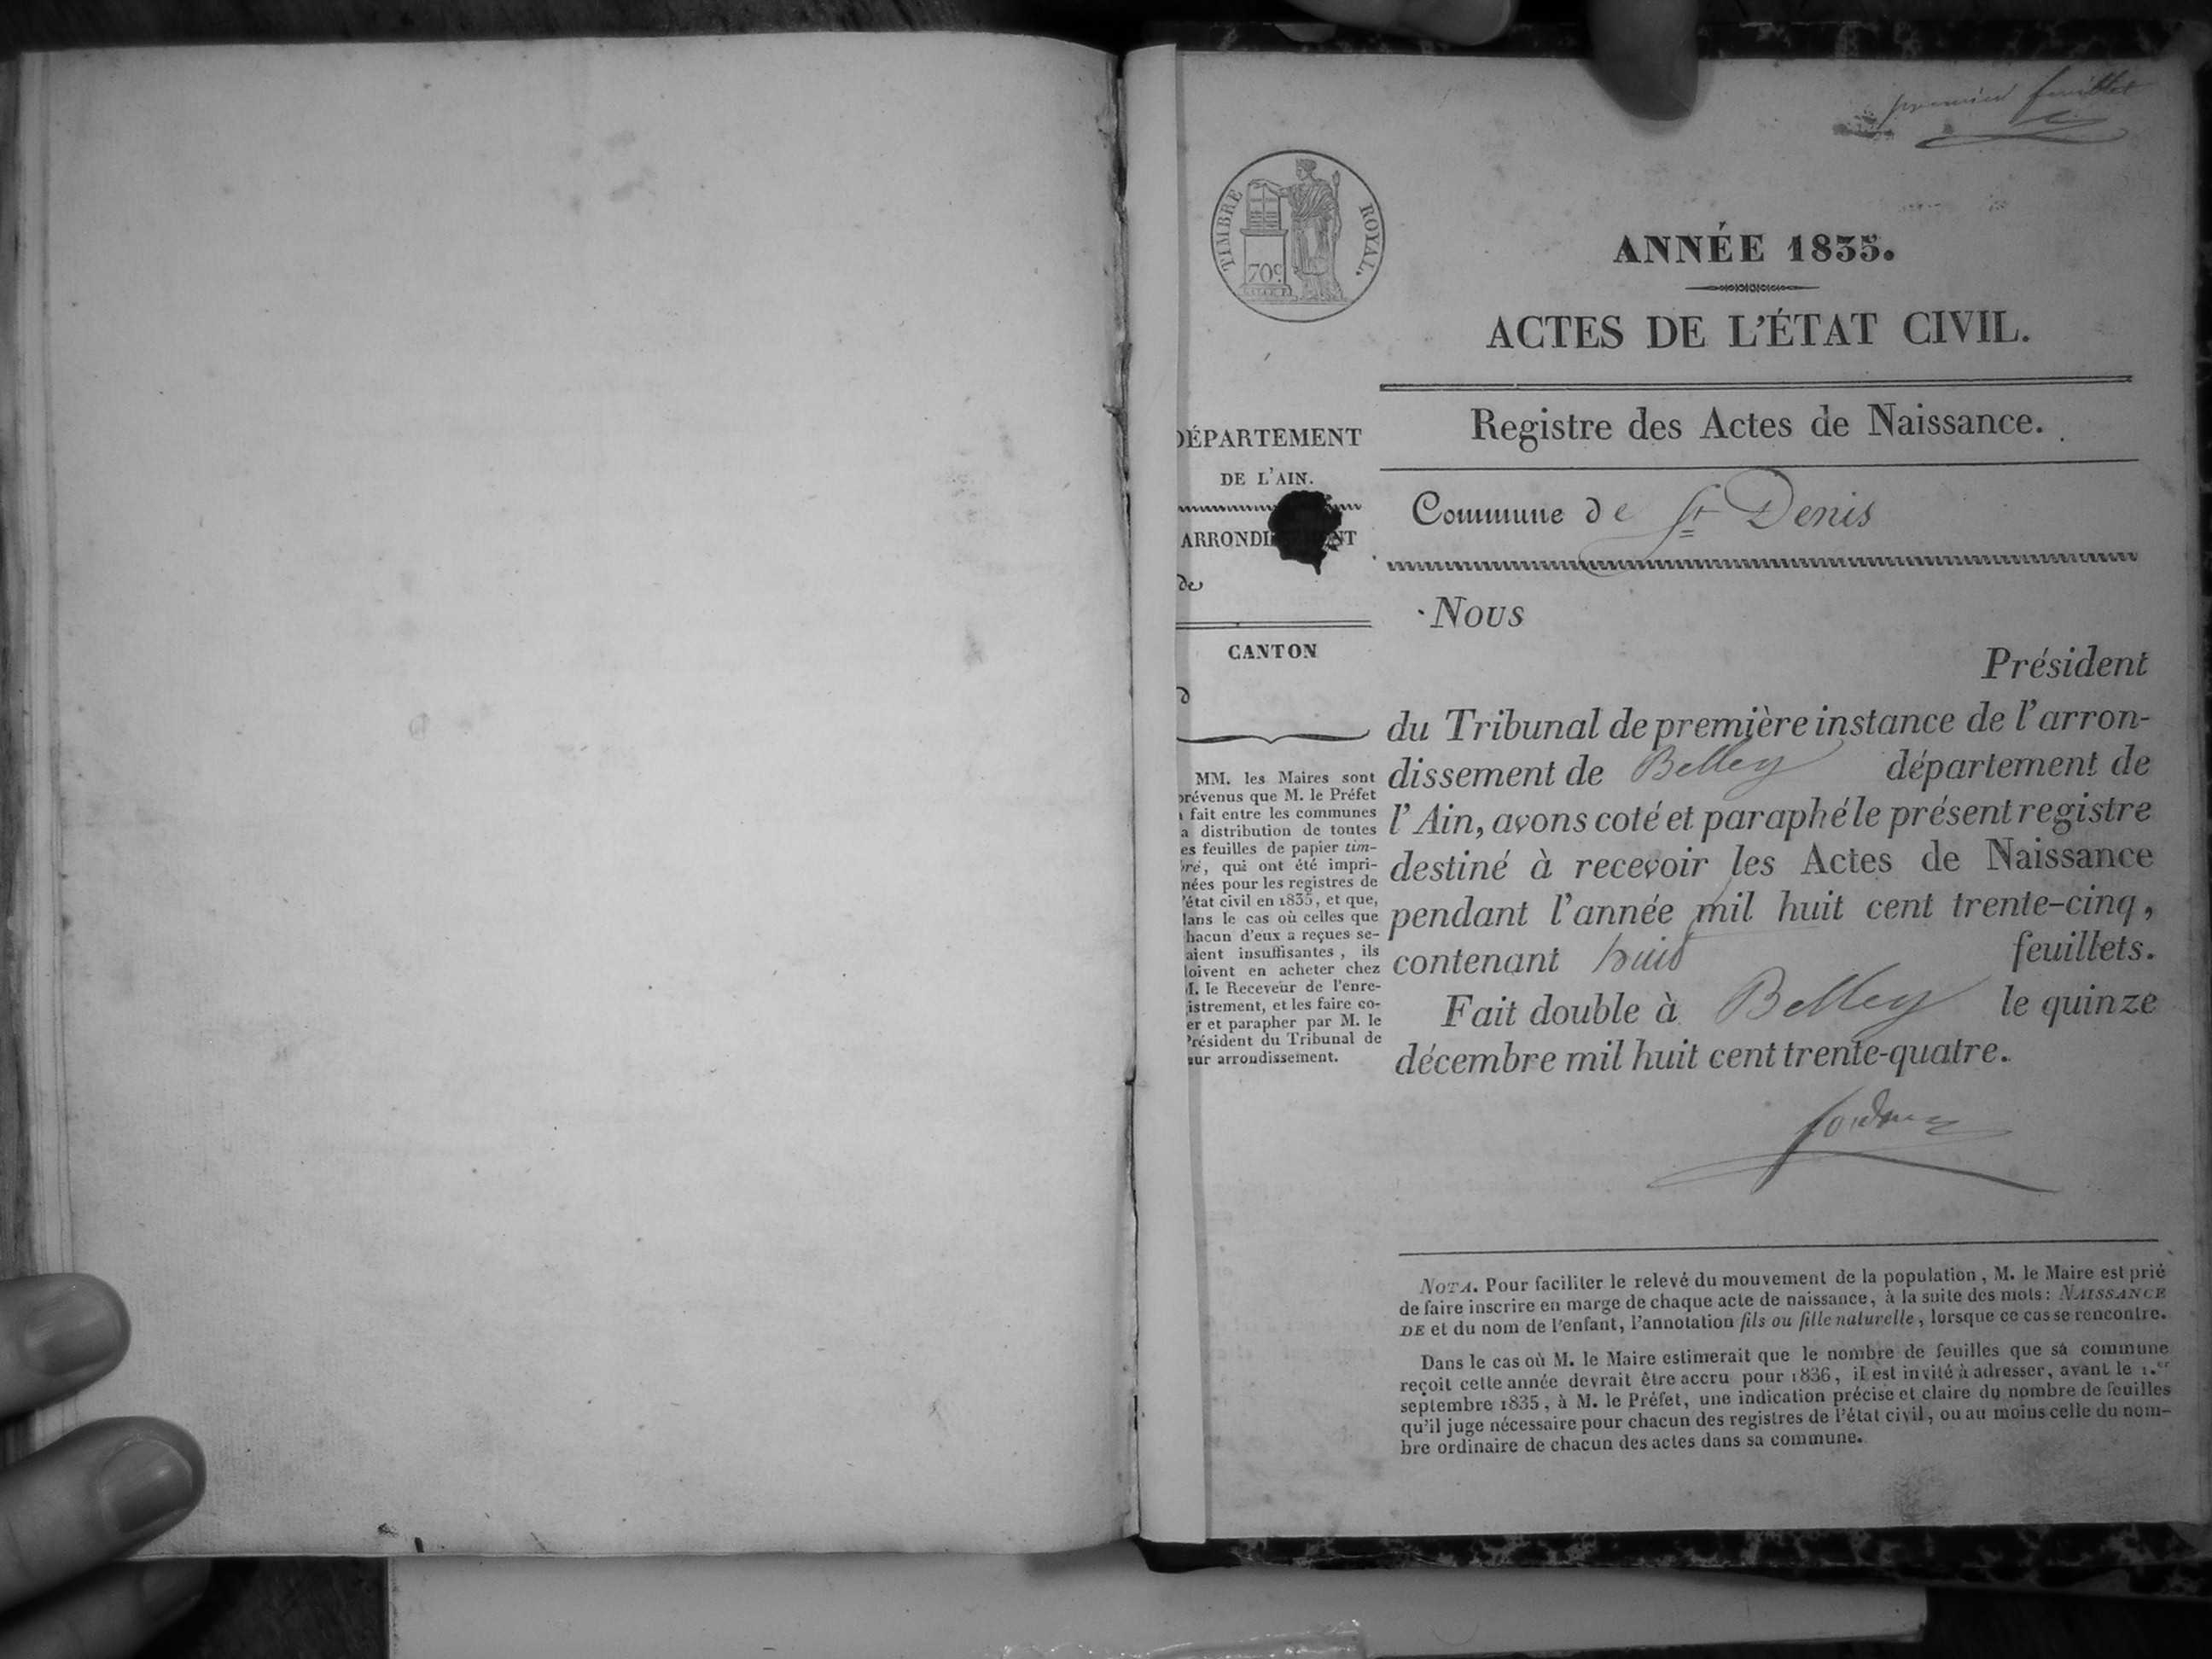 premier feuillet
TIMBRE ROYAL.
70c.
ANNÉE 1835.
ACTES DE L'ÉTAT CIVIL.
Registre des Actes de Naissance.
Commune de St Denis
DÉPARTEMENT
DE L'AIN.
ARRONDI NT
de
CANTON
d
MM. les Maires sont
prévenus que M. le Préfet
a fait entre les communes
a distribution de toutes
es feuilles de papier tim-
bré, qui ont été impri-
mées pour les registres de
l'état civil en 1835, et que,
dans le cas où celles que
chacun d'eux a reçues se-
raient insuffisantes, ils
doivent en acheter chez
M. le Receveur de l'enre-
gistrement, et les faire co-
er et parapher par M. le
Président du Tribunal de
eur arrondissement.
Nous
Président
du Tribunal de première instance de l'arron-
dissement de Belley département de
l'Ain, avons coté et paraphé le présent registre
destiné à recevoir les Actes de Naissance
pendant l'année mil huit cent trente-cinq,
contenant huit feuillets.
Fait double à Belley le quinze
décembre mil huit cent trente-quatre.
NOTA. Pour faciliter le relevé du mouvement de la population, M. le Maire est prié
de faire inscrire en marge de chaque acte de naissance, à la suite des mots: NAISSANCE
DE et du nom de l'enfant, l'annotation fils ou fille naturelle, lorsque ce cas se rencontre.
Dans le cas où M. le Maire estimerait que le nombre de feuilles que sa commune
reçoit cette année devrait être accru pour 1836, il est invité à adresser, avant le 1.er
septembre 1835, à M. le Préfet, une indication précise et claire du nombre de feuilles
qu'il juge nécessaire pour chacun des registres de l'état civil, ou au moins celle du nom-
bre ordinaire de chacun des actes dans sa commune.